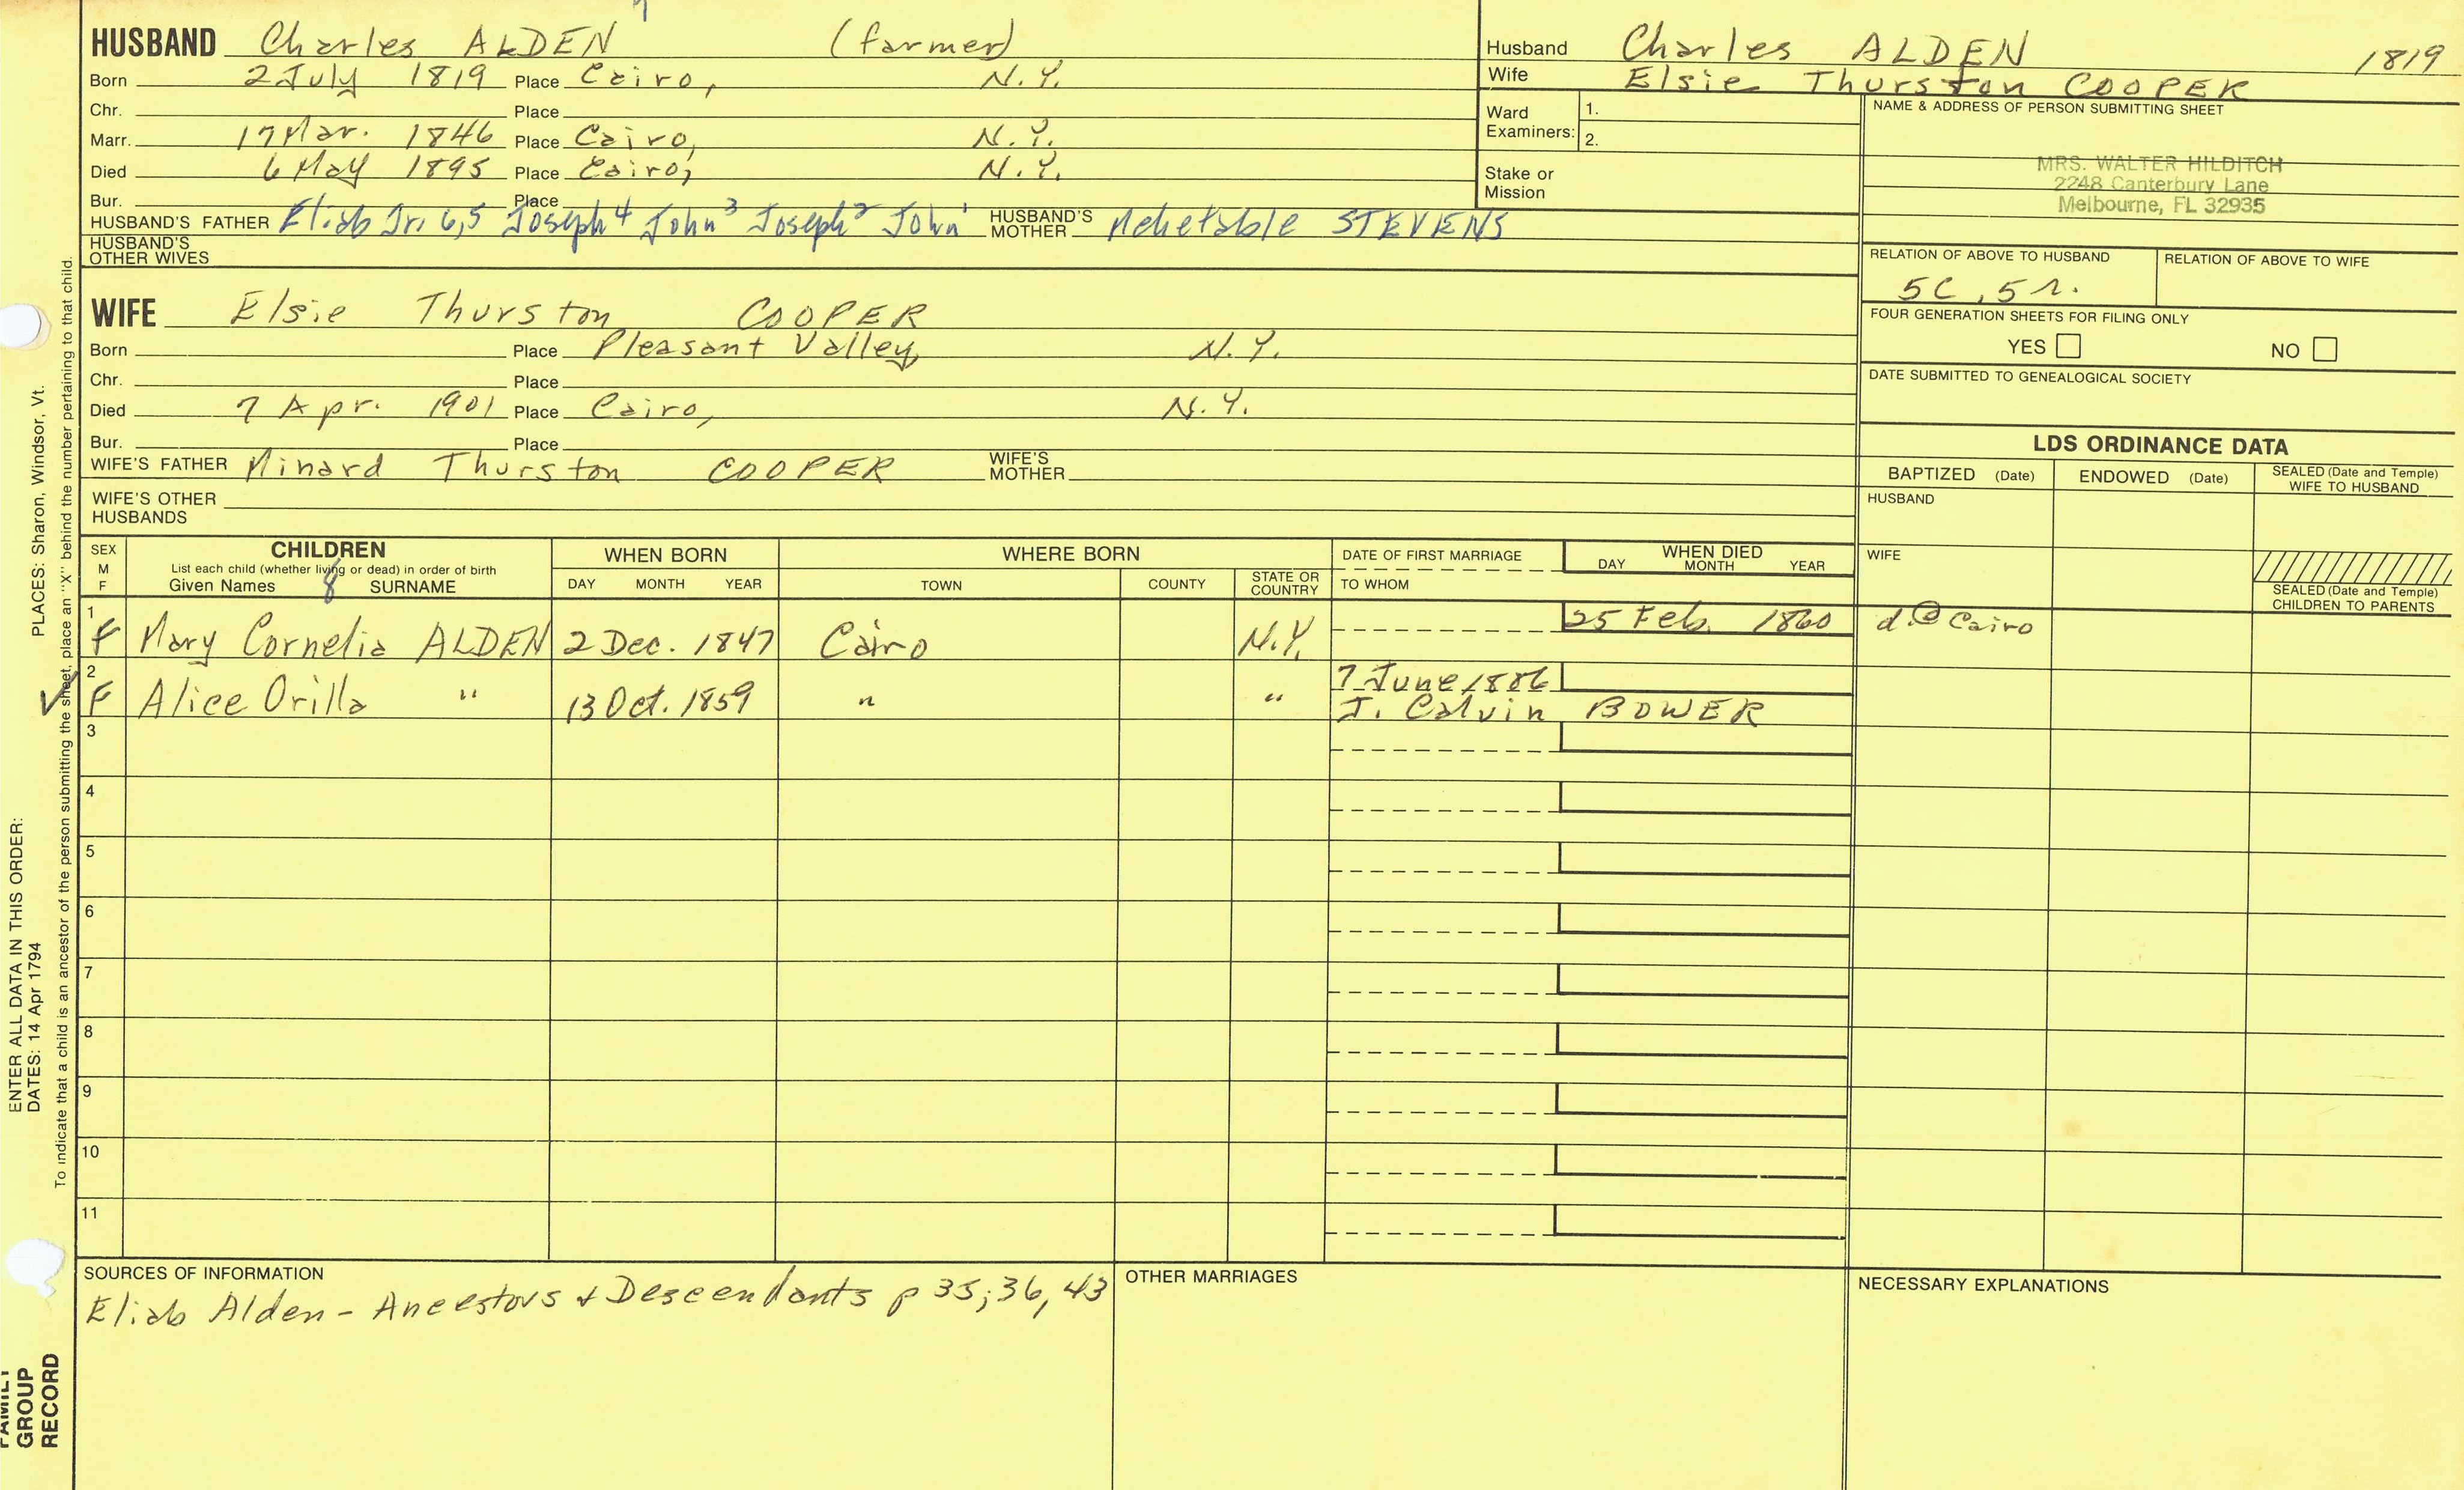 7
HUSBAND Charles ALDEN (farmer)
Born 2 July 1819 Place Cairo, N.Y.
Chr. Place
Marr. 17 Mar. 1846 Place Cairo, N.Y.
Died 6 May 1895 Place Cairo, N.Y.
Bur. Place
HUSBAND'S FATHER Eliab Jr. 6,5 Joseph 4 John 3 Joseph 2 John 1 HUSBAND'S MOTHER Mehetable STEVENS
HUSBAND'S OTHER WIVES
Husband Charles ALDEN 1819
Wife Elsie Thurston COOPER
Ward Examiners: 1.
2.
Stake or Mission
NAME & ADDRESS OF PERSON SUBMITTING SHEET
MRS. WALTER HILDITCH
2248 Canterbury Lane
Melbourne, FL 32935
RELATION OF ABOVE TO HUSBAND RELATION OF ABOVE TO WIFE
5C, 5r.
FOUR GENERATION SHEETS FOR FILING ONLY
YES NO
DATE SUBMITTED TO GENEALOGICAL SOCIETY
WIFE Elsie Thurston COOPER
Born Place Pleasant Valley, N.Y.
Chr. Place
Died 7 Apr. 1901 Place Cairo, N.Y.
Bur. Place
WIFE'S FATHER Minard Thurston COOPER WIFE'S MOTHER
WIFE'S OTHER HUSBANDS
LDS ORDINANCE DATA
BAPTIZED (Date) ENDOWED (Date) SEALED (Date and Temple) WIFE TO HUSBAND
HUSBAND
WIFE
SEALED (Date and Temple) CHILDREN TO PARENTS
SEX M F
CHILDREN
List each child (whether living or dead) in order of birth
Given Names 8 SURNAME
WHEN BORN
DAY MONTH YEAR
WHERE BORN
TOWN COUNTY STATE OR COUNTRY
DATE OF FIRST MARRIAGE
TO WHOM
WHEN DIED
DAY MONTH YEAR
1 F Mary Cornelia ALDEN 2 Dec. 1847 Cairo N.Y. 25 Feb. 1860 d. @ Cairo
2 7 June 1886
✓ F Alice Orilla " 13 Oct. 1859 " " J. Calvin BOWER
3
4
5
6
7
8
9
10
11
SOURCES OF INFORMATION
Eliab Alden - Ancestors + Descendants p 35; 36, 43
OTHER MARRIAGES
NECESSARY EXPLANATIONS
PLACES: Sharon, Windsor, Vt.
To indicate that a child is an ancestor of the person submitting the sheet, place an "X" behind the number pertaining to that child.
ENTER ALL DATA IN THIS ORDER:
DATES: 14 Apr 1794
FAMILY
GROUP
RECORD